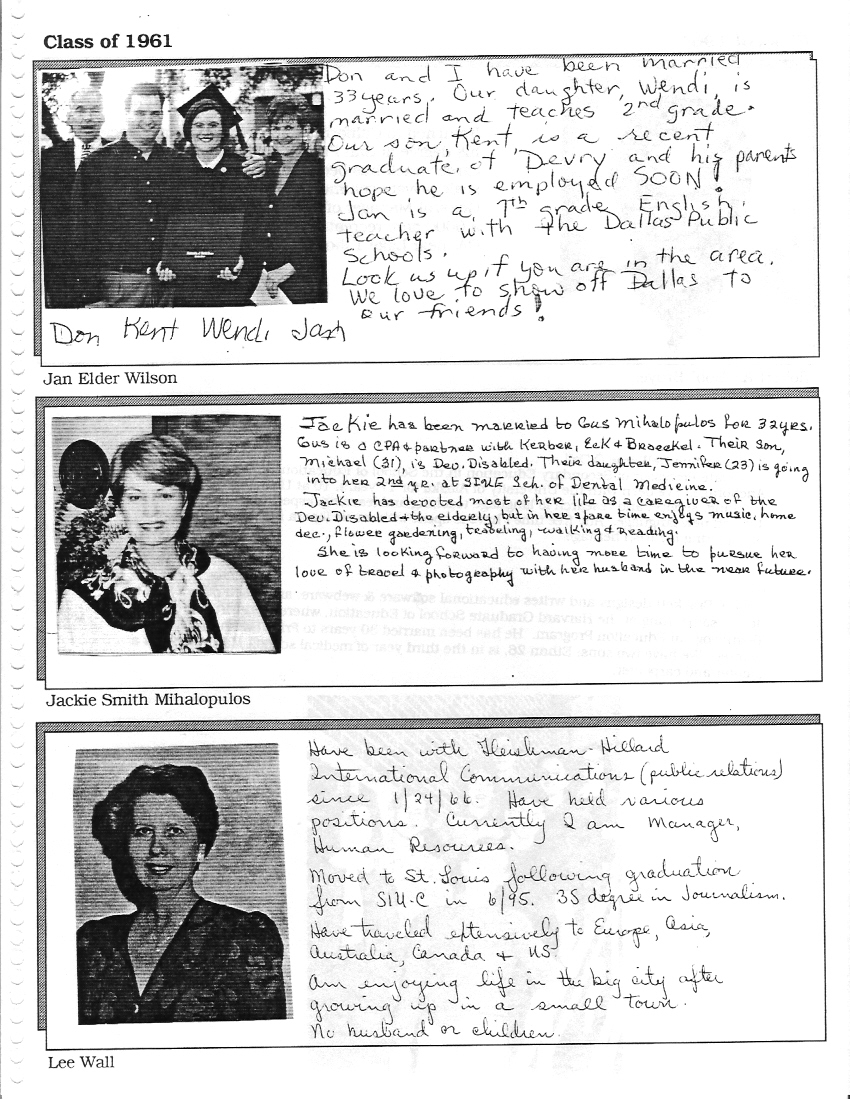 Class of 1961
Don and I have been married
33 years. Our daughter, Wendi, is
married and teaches 2nd grade.
Our son, Kent, is a recent
graduate of Devry and his parents
hope he is employed SOON!
Jan is a 7th grade English
teacher with the Dallas Public
Schools.
Look us up if you are in the area.
We love to show off Dallas to
our friends!
Don Kent Wendi Jan
Jan Elder Wilson
Jackie has been married to Gus Mihalopulos for 32 yrs.
Gus is a CPA & partner with Kerber, Eck & Braeckel. Their son,
Michael (31), is Dev. Disabled. Their daughter, Jennifer (23) is going
into her 2nd yr. at SIUE Sch. of Dental Medicine.
Jackie has devoted most of her life as a caregiver of the
Dev. Disabled & the elderly, but in her spare time enjoys music, home
dec., flower gardening, traveling, walking & reading.
She is looking forward to having more time to pursue her
love of travel & photography with her husband in the near future.
Jackie Smith Mihalopulos
Have been with Fleishman-Hillard
International Communications (public relations)
since 1/24/66. Have held various
positions. Currently I am Manager,
Human Resources.
Moved to St. Louis following graduation
from SIU-C in 6/95. BS degree in Journalism.
Have traveled extensively to Europe, Asia,
Australia, Canada & US.
Am enjoying life in the big city after
growing up in a small town.
No husband or children.
Lee Wall